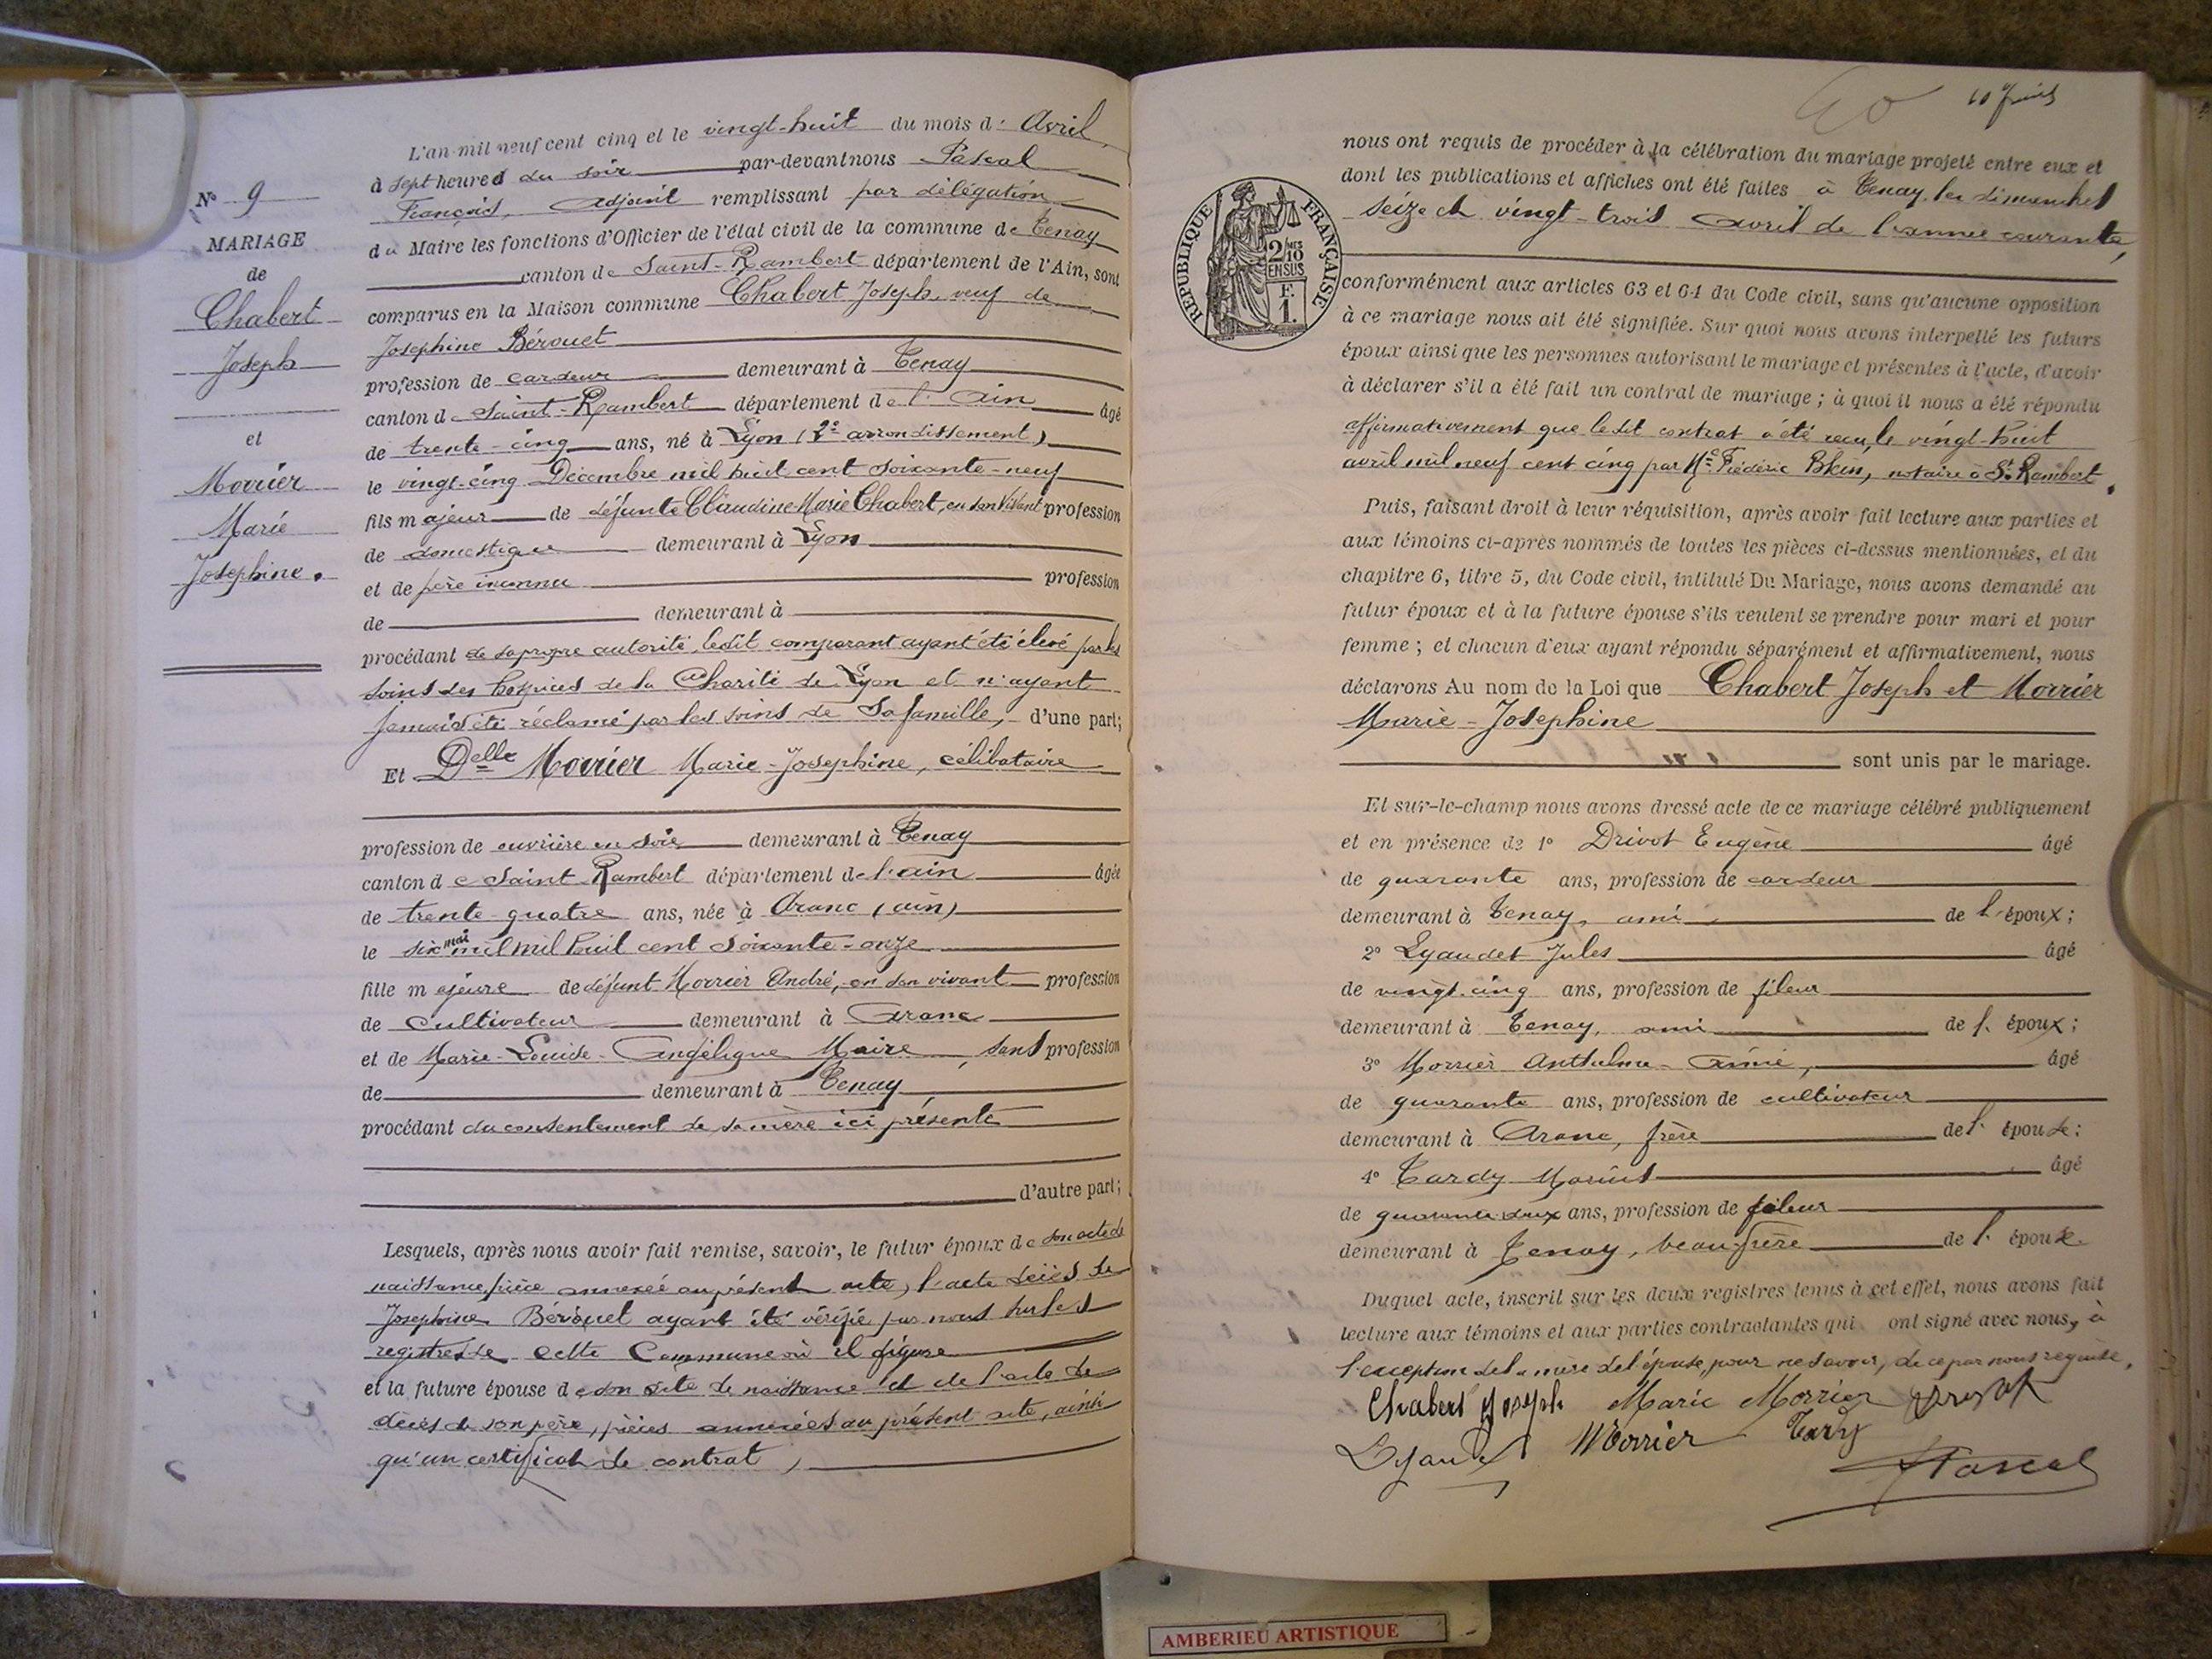 N° 9
MARIAGE
de
Chabert
Joseph
et
Morrier
Marie
Josephine.
L'an mil neuf cent cinq et le vingt-huit du mois d' Avril,
à sept heures du soir par-devant nous Pascal
François, adjoint remplissant par délégation
du Maire les fonctions d'Officier de l'état civil de la commune de Tenay
canton de Saint-Rambert département de l'Ain, sont
comparus en la Maison commune Chabert Joseph, veuf de
Josephine Bérouet
profession de cardeur demeurant à Tenay
canton de Saint-Rambert département de l'Ain âgé
de trente-cinq ans, né à Lyon (2e arrondissement)
le vingt-cinq Décembre mil huit cent soixante-neuf
fils majeur de défunte Claudine-Marie Chabert, en son vivant profession
de domestique demeurant à Lyon
et de père inconnu profession
de demeurant à
procédant de sa propre autorité, ledit comparant ayant été élevé par les
soins des hospices de la Charité de Lyon et n'ayant
jamais été réclamé par les soins de sa famille, d'une part;
Et Delle Morrier Marie-Josephine, célibataire
profession de ouvrière en soie demeurant à Tenay
canton de Saint-Rambert département de l'ain âgée
de trente-quatre ans, née à Aranc (ain)
le six mai mil mil huit cent soixante-onze
fille majeure de défunt Morrier André, en son vivant profession
de cultivateur demeurant à Aranc
et de Marie-Louise-Angélique Maire, sans profession
de demeurant à Tenay
procédant du consentement de sa mère ici présente
d'autre part;
Lesquels, après nous avoir fait remise, savoir, le futur époux de son acte de
naissance, pièce annexée au présent acte, l'acte décès de
Josephine Bérouet ayant été vérifié par nous sur les
registres de cette Commune où il figure
et la future épouse de son acte de naissance et de l'acte de
décès de son père, pièces annexées au présent acte, ainsi
qu'un certificat de contrat,
60
REPUBLIQUE FRANÇAISE
2/10 MES
EN SUS
F.
1.
nous ont requis de procéder à la célébration du mariage projeté entre eux et
dont les publications et affiches ont été faites à Tenay, les dimanches
seize et vingt-trois avril de l'année courante,
conformément aux articles 63 et 64 du Code civil, sans qu'aucune opposition
à ce mariage nous ait été signifiée. Sur quoi nous avons interpellé les futurs
époux ainsi que les personnes autorisant le mariage et présentes à l'acte, d'avoir
à déclarer s'il a été fait un contrat de mariage; à quoi il nous a été répondu
affirmativement que ledit contrat a été reçu le vingt-huit
avril mil neuf cent cinq par Me Frédéric notaire à St Rambert.
Puis, faisant droit à leur réquisition, après avoir fait lecture aux parties et
aux témoins ci-après nommés de toutes les pièces ci-dessus mentionnées, et du
chapitre 6, titre 5, du Code civil, intitulé Du Mariage, nous avons demandé au
futur époux et à la future épouse s'ils veulent se prendre pour mari et pour
femme; et chacun d'eux ayant répondu séparément et affirmativement, nous
déclarons Au nom de la Loi que Chabert Joseph et Morrier
Marie-Josephine
sont unis par le mariage.
Et sur-le-champ nous avons dressé acte de ce mariage célébré publiquement
et en présence de 1° Drivot Eugène âgé
de quarante ans, profession de cardeur
demeurant à Tenay, ami de l'époux;
2° Lyaudet Jules âgé
de vingt-cinq ans, profession de fileur
demeurant à Tenay, ami de l'époux;
3° Morrier Anthelme-Aimé, âgé
de quarante ans, profession de cultivateur
demeurant à Aranc, frère de l'épouse;
4° Tardy Marius âgé
de quarante-deux ans, profession de fileur
demeurant à Tenay, beau-frère de l'épouse
Duquel acte, inscrit sur les deux registres tenus à cet effet, nous avons fait
lecture aux témoins et aux parties contractantes qui ont signé avec nous, à
l'exception de la mère de l'épouse, pour ne savoir, de ce par nous requise.
Chabert Joseph Marie Morrier Drivot
Lyaudet Morrier Tardy
Pascal
AMBERIEU ARTISTIQUE